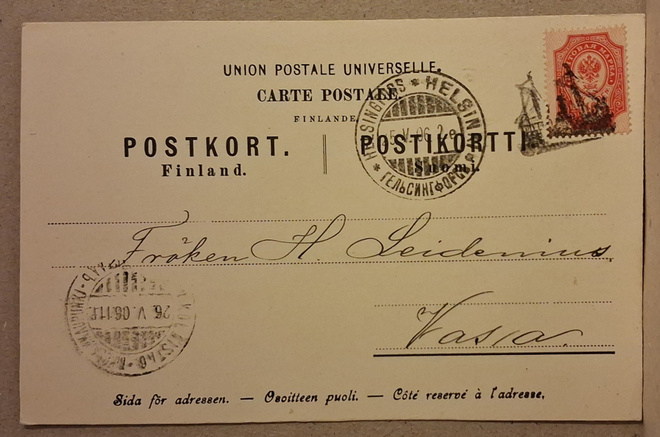 UNION POSTALE UNIVERSELLE.
CARTE POSTALE.
FINLANDE
POSTKORT. POSTIKORTTI
Finland. Suomi.
HELSINGFORS * HELSIN
5.V.06. 2
* ГЕЛЬСИНГФОРСЪ
МАРКА
Fröken H. Seidenius,
Vasa.
26. V. 06. 11
Sida för adressen. — Osoitteen puoli. — Côté reservé à l'adresse.